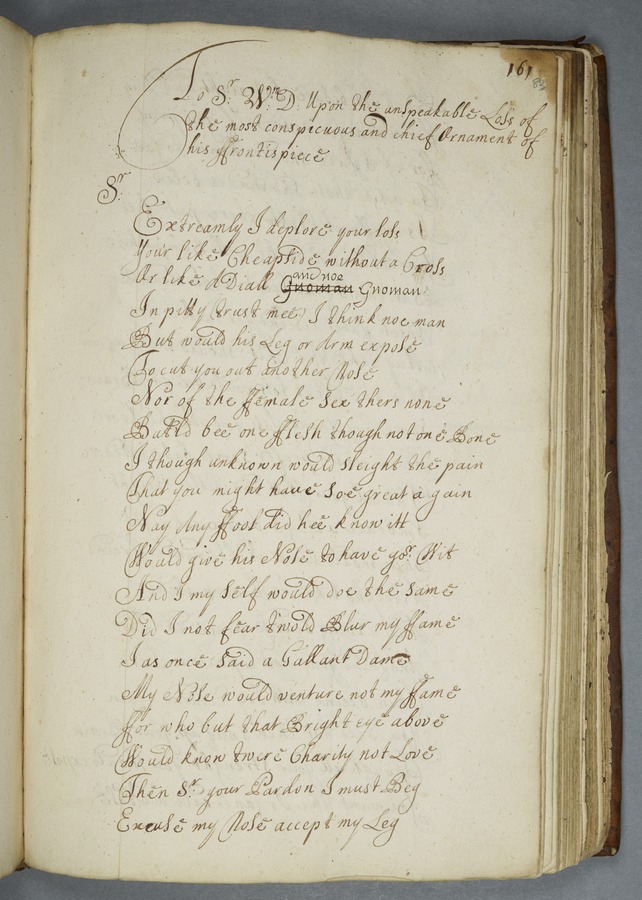 161
To Sr. Wm D: Upon the unspeakable Loss of
the most conspicuous and chief Ornament of
his ffrontispiece
Sr
Extreamly I deplore your loss
Your like Cheapside without a Cross
Or like a Diall and noe Gnoman Gnoman
In pitty (trust mee) I think noe man
But would his Leg or Arm expose
To cut you out another Nose
Nor of the ffemale Sex thers none
But'ld bee one fflesh though not one Bone
I though unknown would sleight the pain
That you might have soe great a gain
Nay Any ffool did hee know itt
Would give his Nose to have yor. Wit
And I my self would doe the same
Did I not fear 'twold Blur my ffame
I as once said a Gallant Dame
My Nose would venture not my ffame
ffor who but that Bright eye above
Would know twere Charity not Love
Then Sr. your Pardon I must Beg
Excuse my Nose accept my Leg